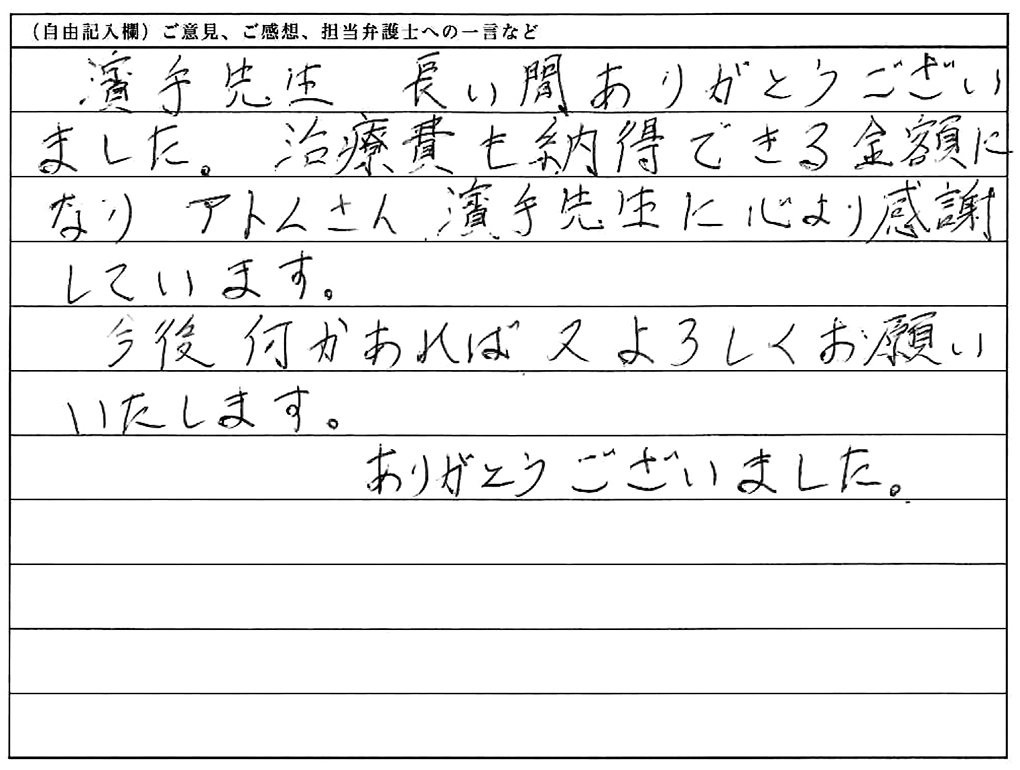 (自由記入欄)ご意見、ご感想、担当弁護士への一言など
濱手先生 長い間ありがとうござい
ました。治療費も納得できる金額に
なり アトムさん 濱手先生に心より感謝
しています。
今後何かあれば又よろしくお願い
いたします。
ありがとうございました。